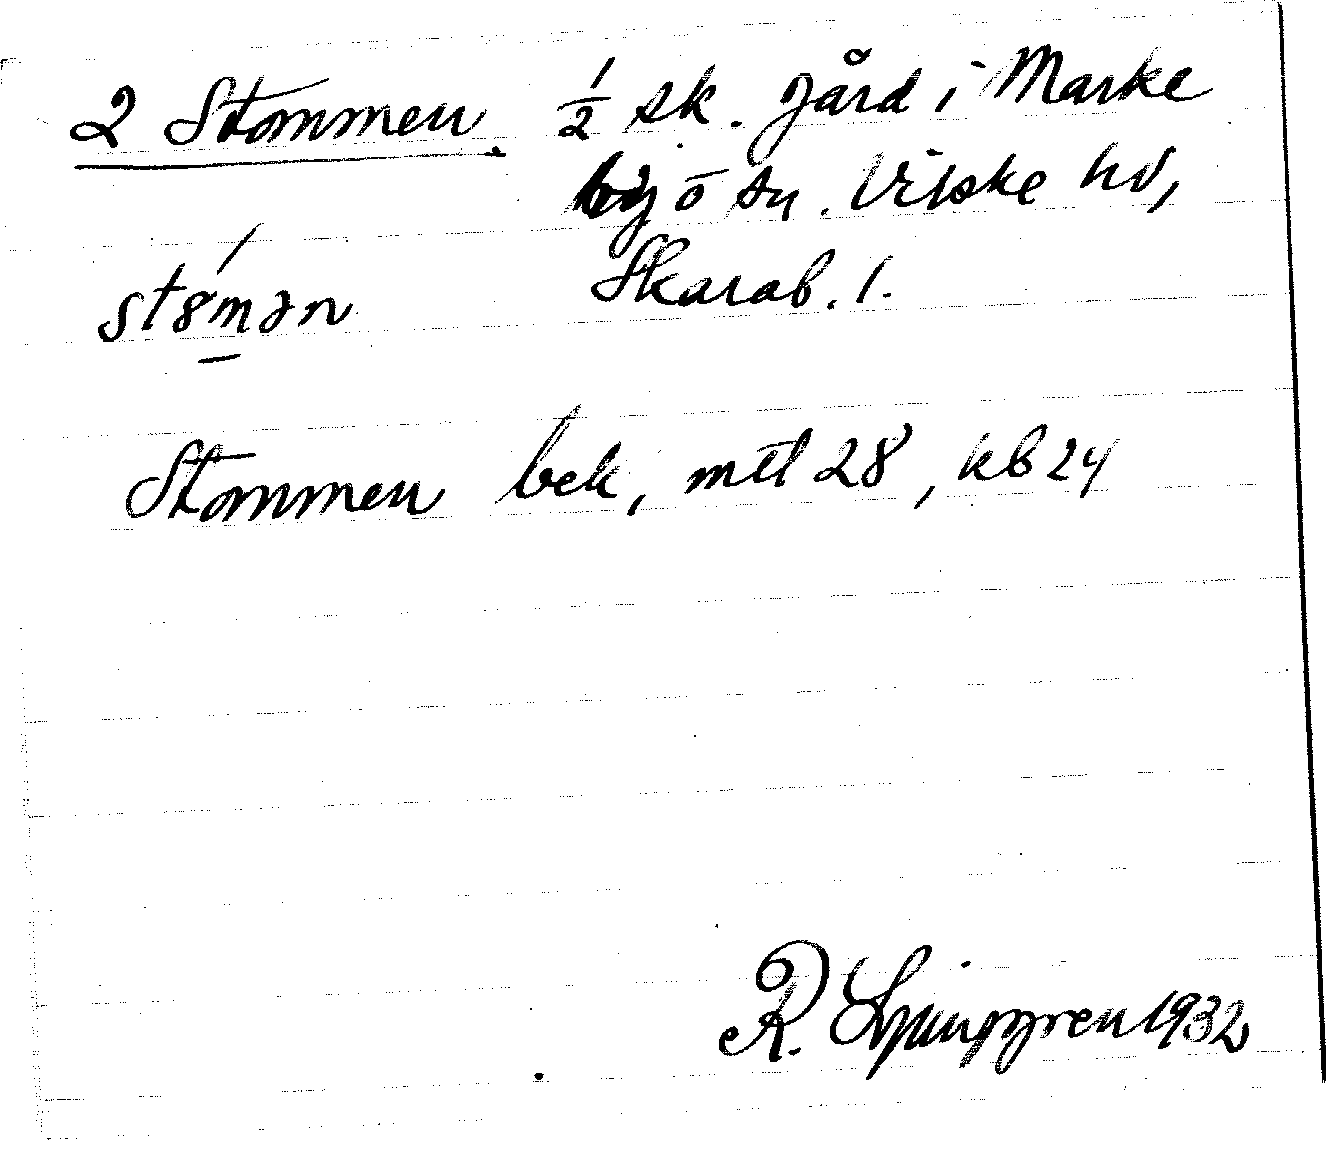 2 Stommen. ½ sk. gård i Marke
by o sn. Vilske hd,
stømən Skarab. l.
Stommen bek, mtl 28, kb 24
R. Ljunggren 1932